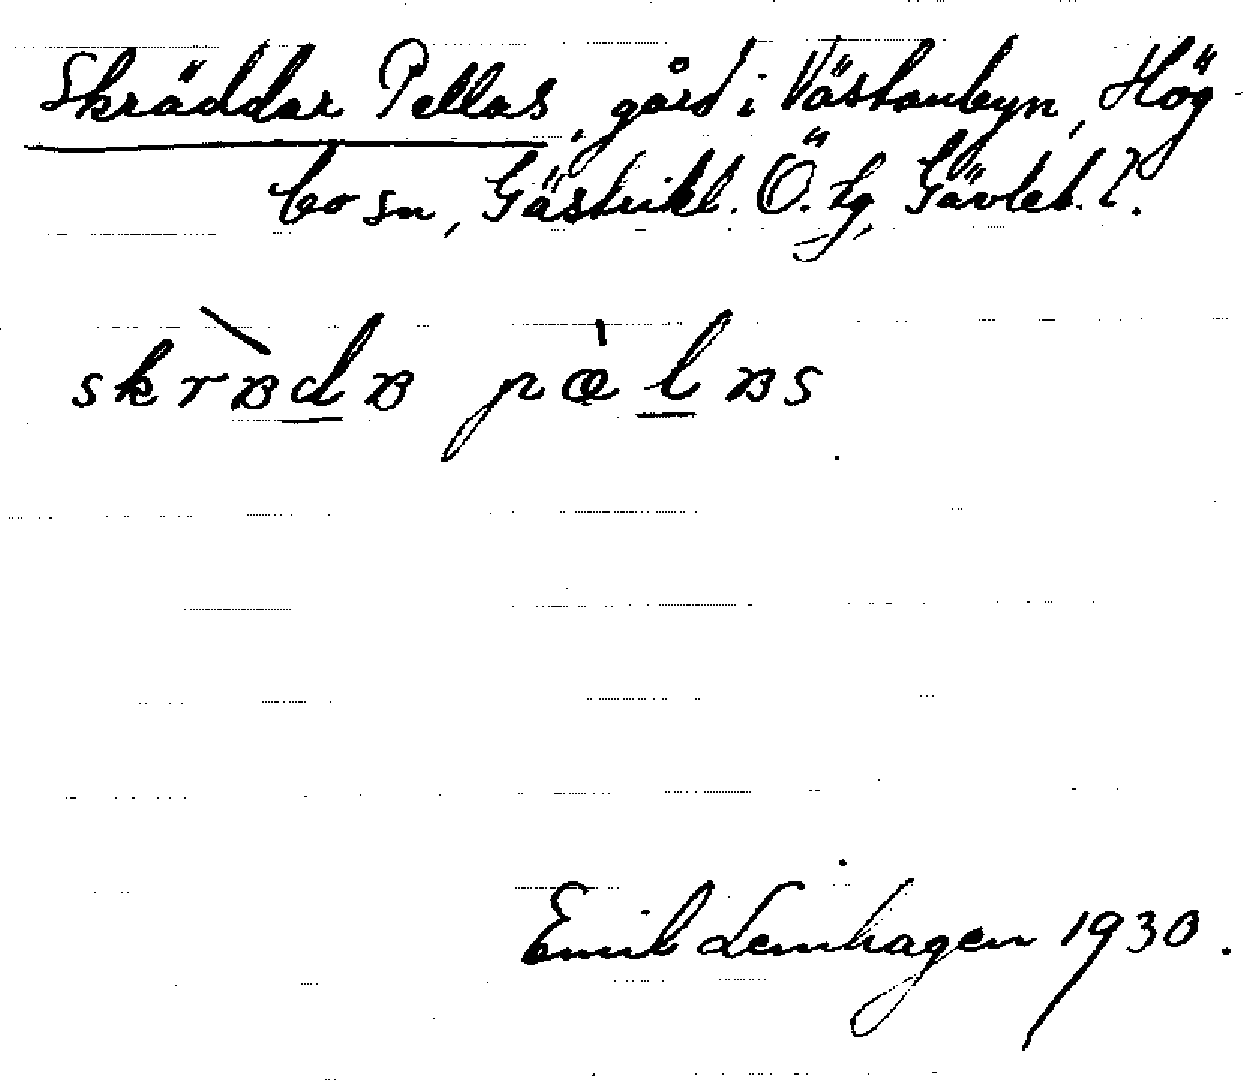 Skräddar Pellas, gård i Västanbyn, Hög-
bo sn, Gästrikl. Ö. tg, Gävleb. l.
skrädä pælas
Emil Lemhagen 1930.